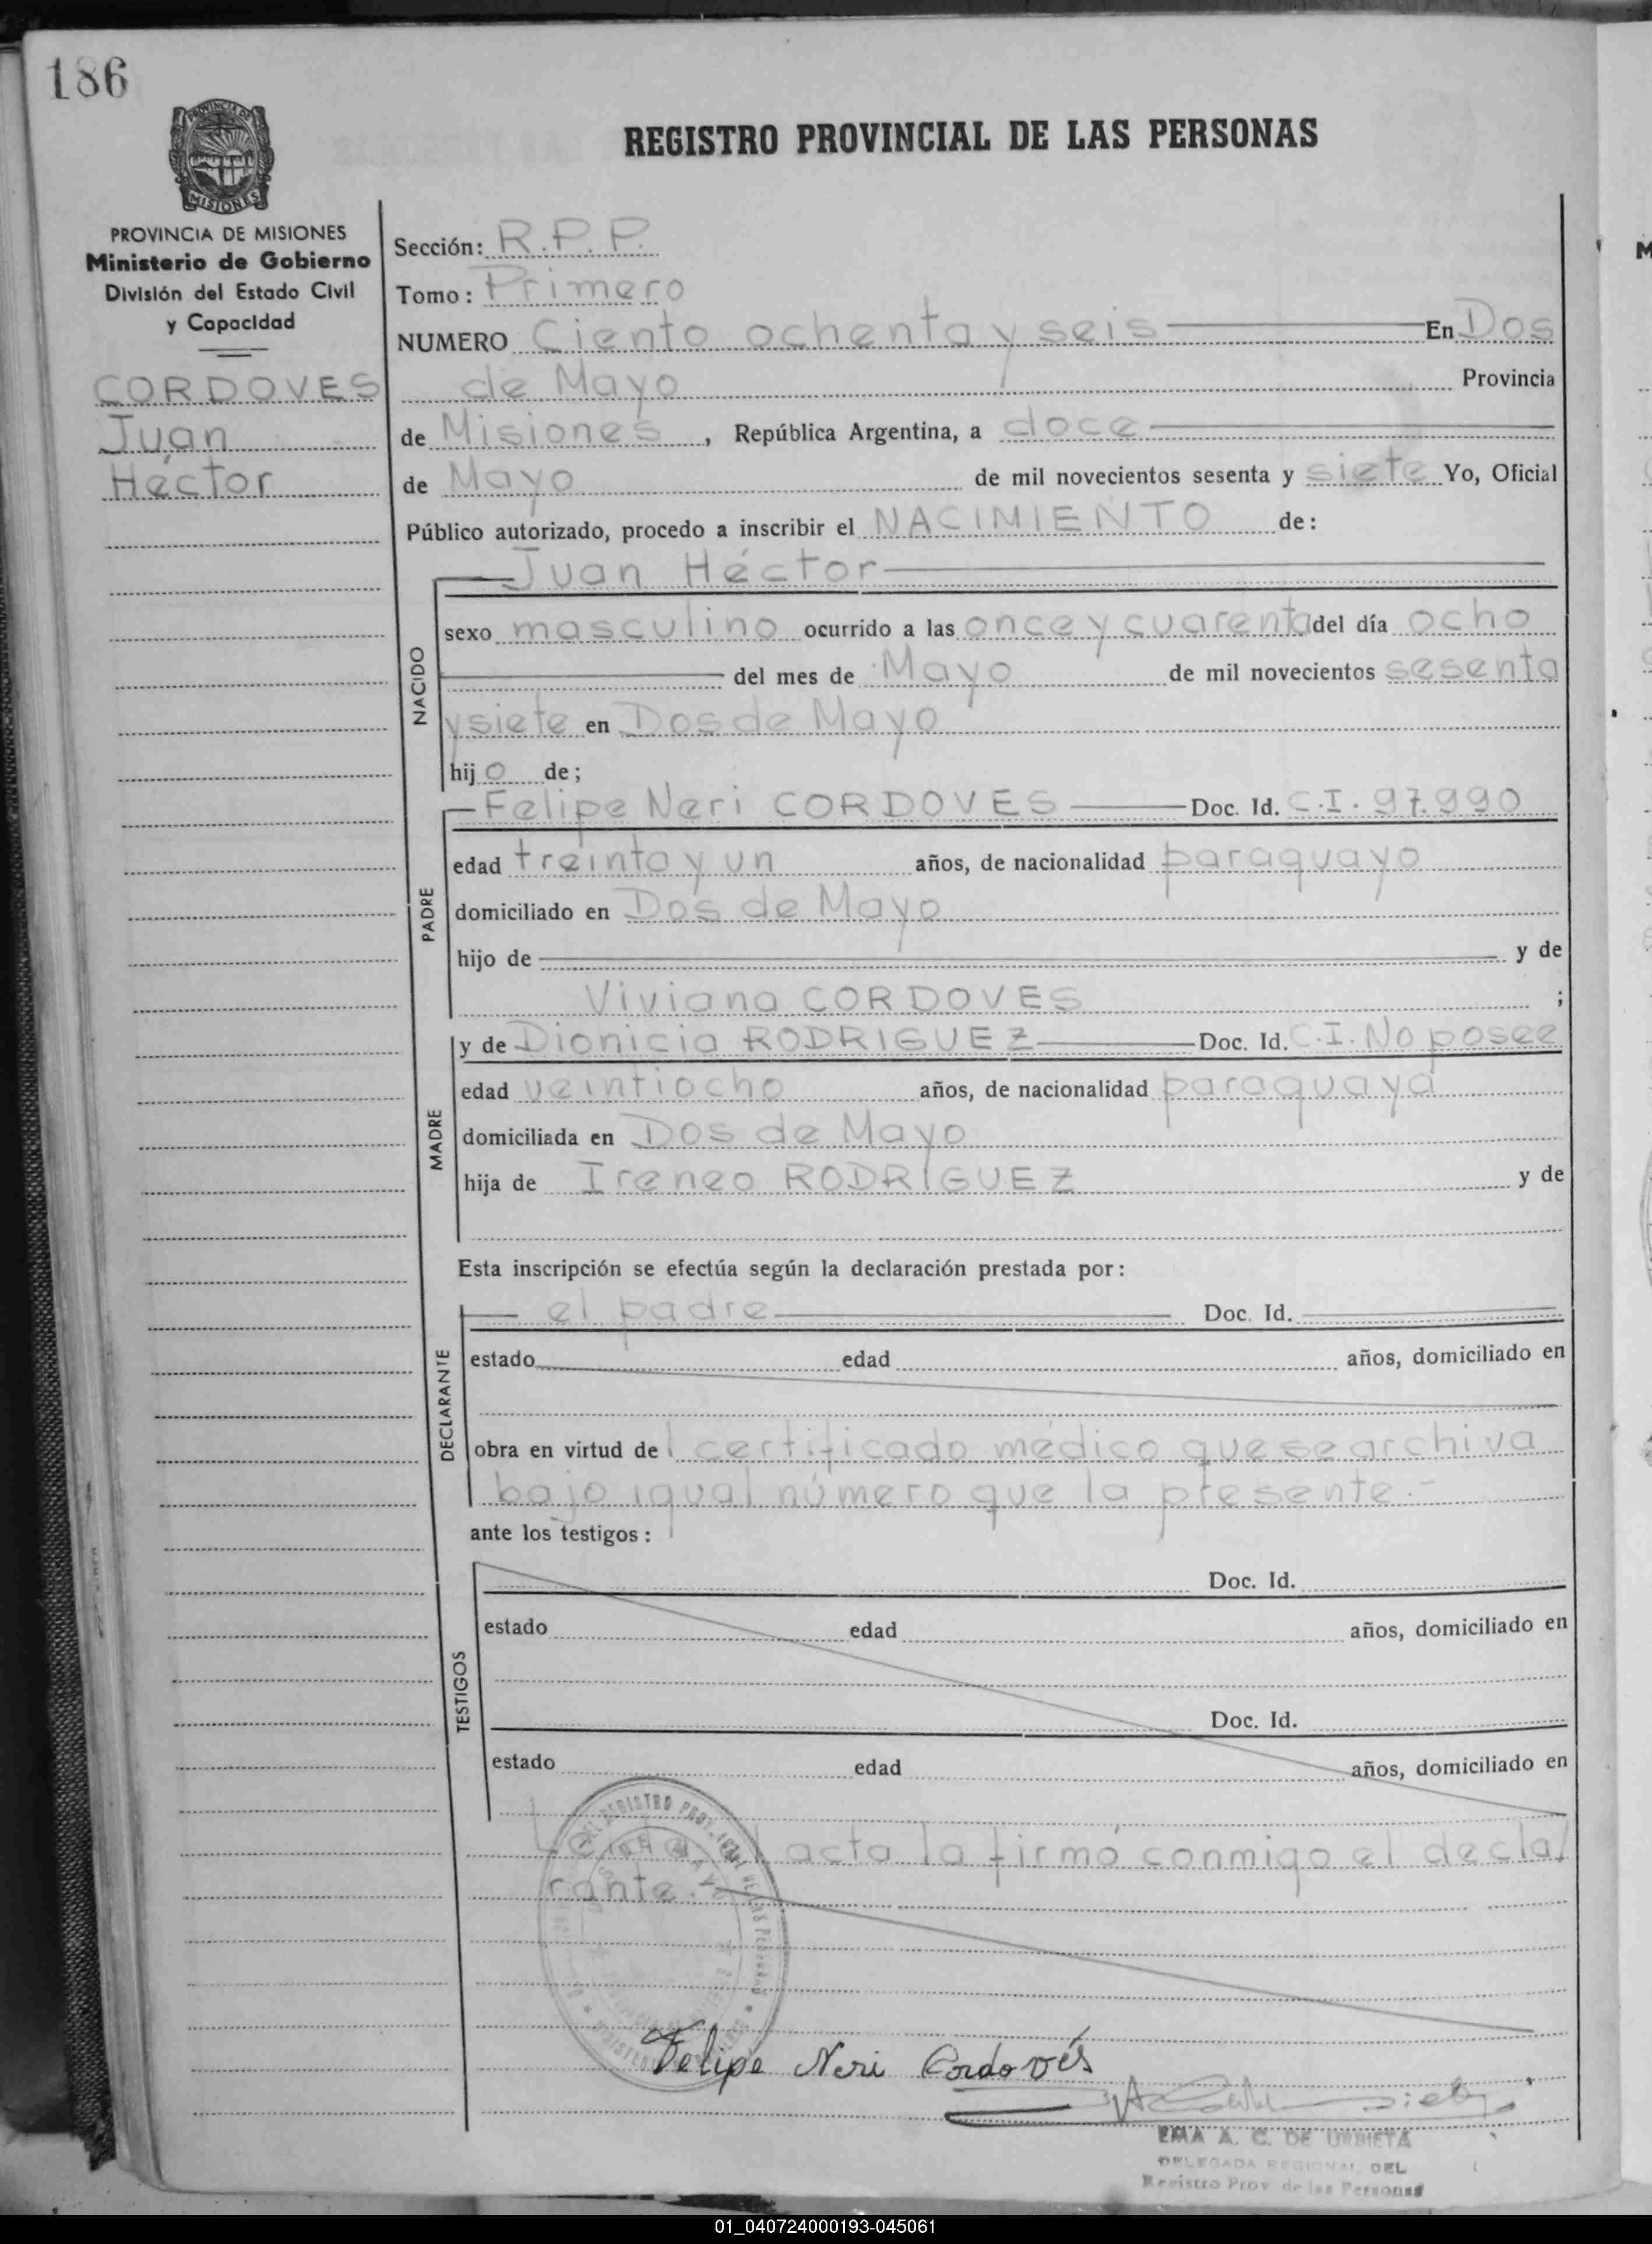 186
REGISTRO PROVINCIAL DE LAS PERSONAS
PROVINCIA DE
MISIONES
PROVINCIA DE MISIONES
Ministerio de Gobierno
División del Estado Civil
y Capacidad
CORDOVES
Juan
Héctor
Sección: R.P.P.
Tomo: Primero
NUMERO Ciento ochenta y seis En Dos
de Mayo Provincia
de Misiones, República Argentina, a doce
de Mayo de mil novecientos sesenta y siete Yo, Oficial
Público autorizado, procedo a inscribir el NACIMIENTO de:
Juan Héctor
NACIDO
sexo masculino ocurrido a las once y cuarenta del día ocho
del mes de Mayo de mil novecientos sesenta
y siete en Dos de Mayo
hijo de;
Felipe Neri CORDOVES Doc. Id. C.I. 97.990
PADRE
edad treinta y un años, de nacionalidad paraguayo
domiciliado en Dos de Mayo
hijo de y de
Viviana CORDOVES ;
y de Dionicia RODRIGUEZ Doc. Id. C.I. No posee
MADRE
edad veintiocho años, de nacionalidad paraguaya
domiciliada en Dos de Mayo
hija de Ireneo RODRIGUEZ y de
Esta inscripción se efectúa según la declaración prestada por:
el padre Doc. Id.
DECLARANTE
estado edad años, domiciliado en
obra en virtud del certificado médico que se archiva
bajo igual número que la presente.-
ante los testigos:
TESTIGOS
Doc. Id.
estado edad años, domiciliado en
Doc. Id.
estado edad años, domiciliado en
acta la firmó conmigo el decla
rante.
Felipe Neri Cordovés
EMA A. C. DE URBIETA
DELEGADA REGIONAL DEL
Registro Prov de las Personas
01_040724000193-045061